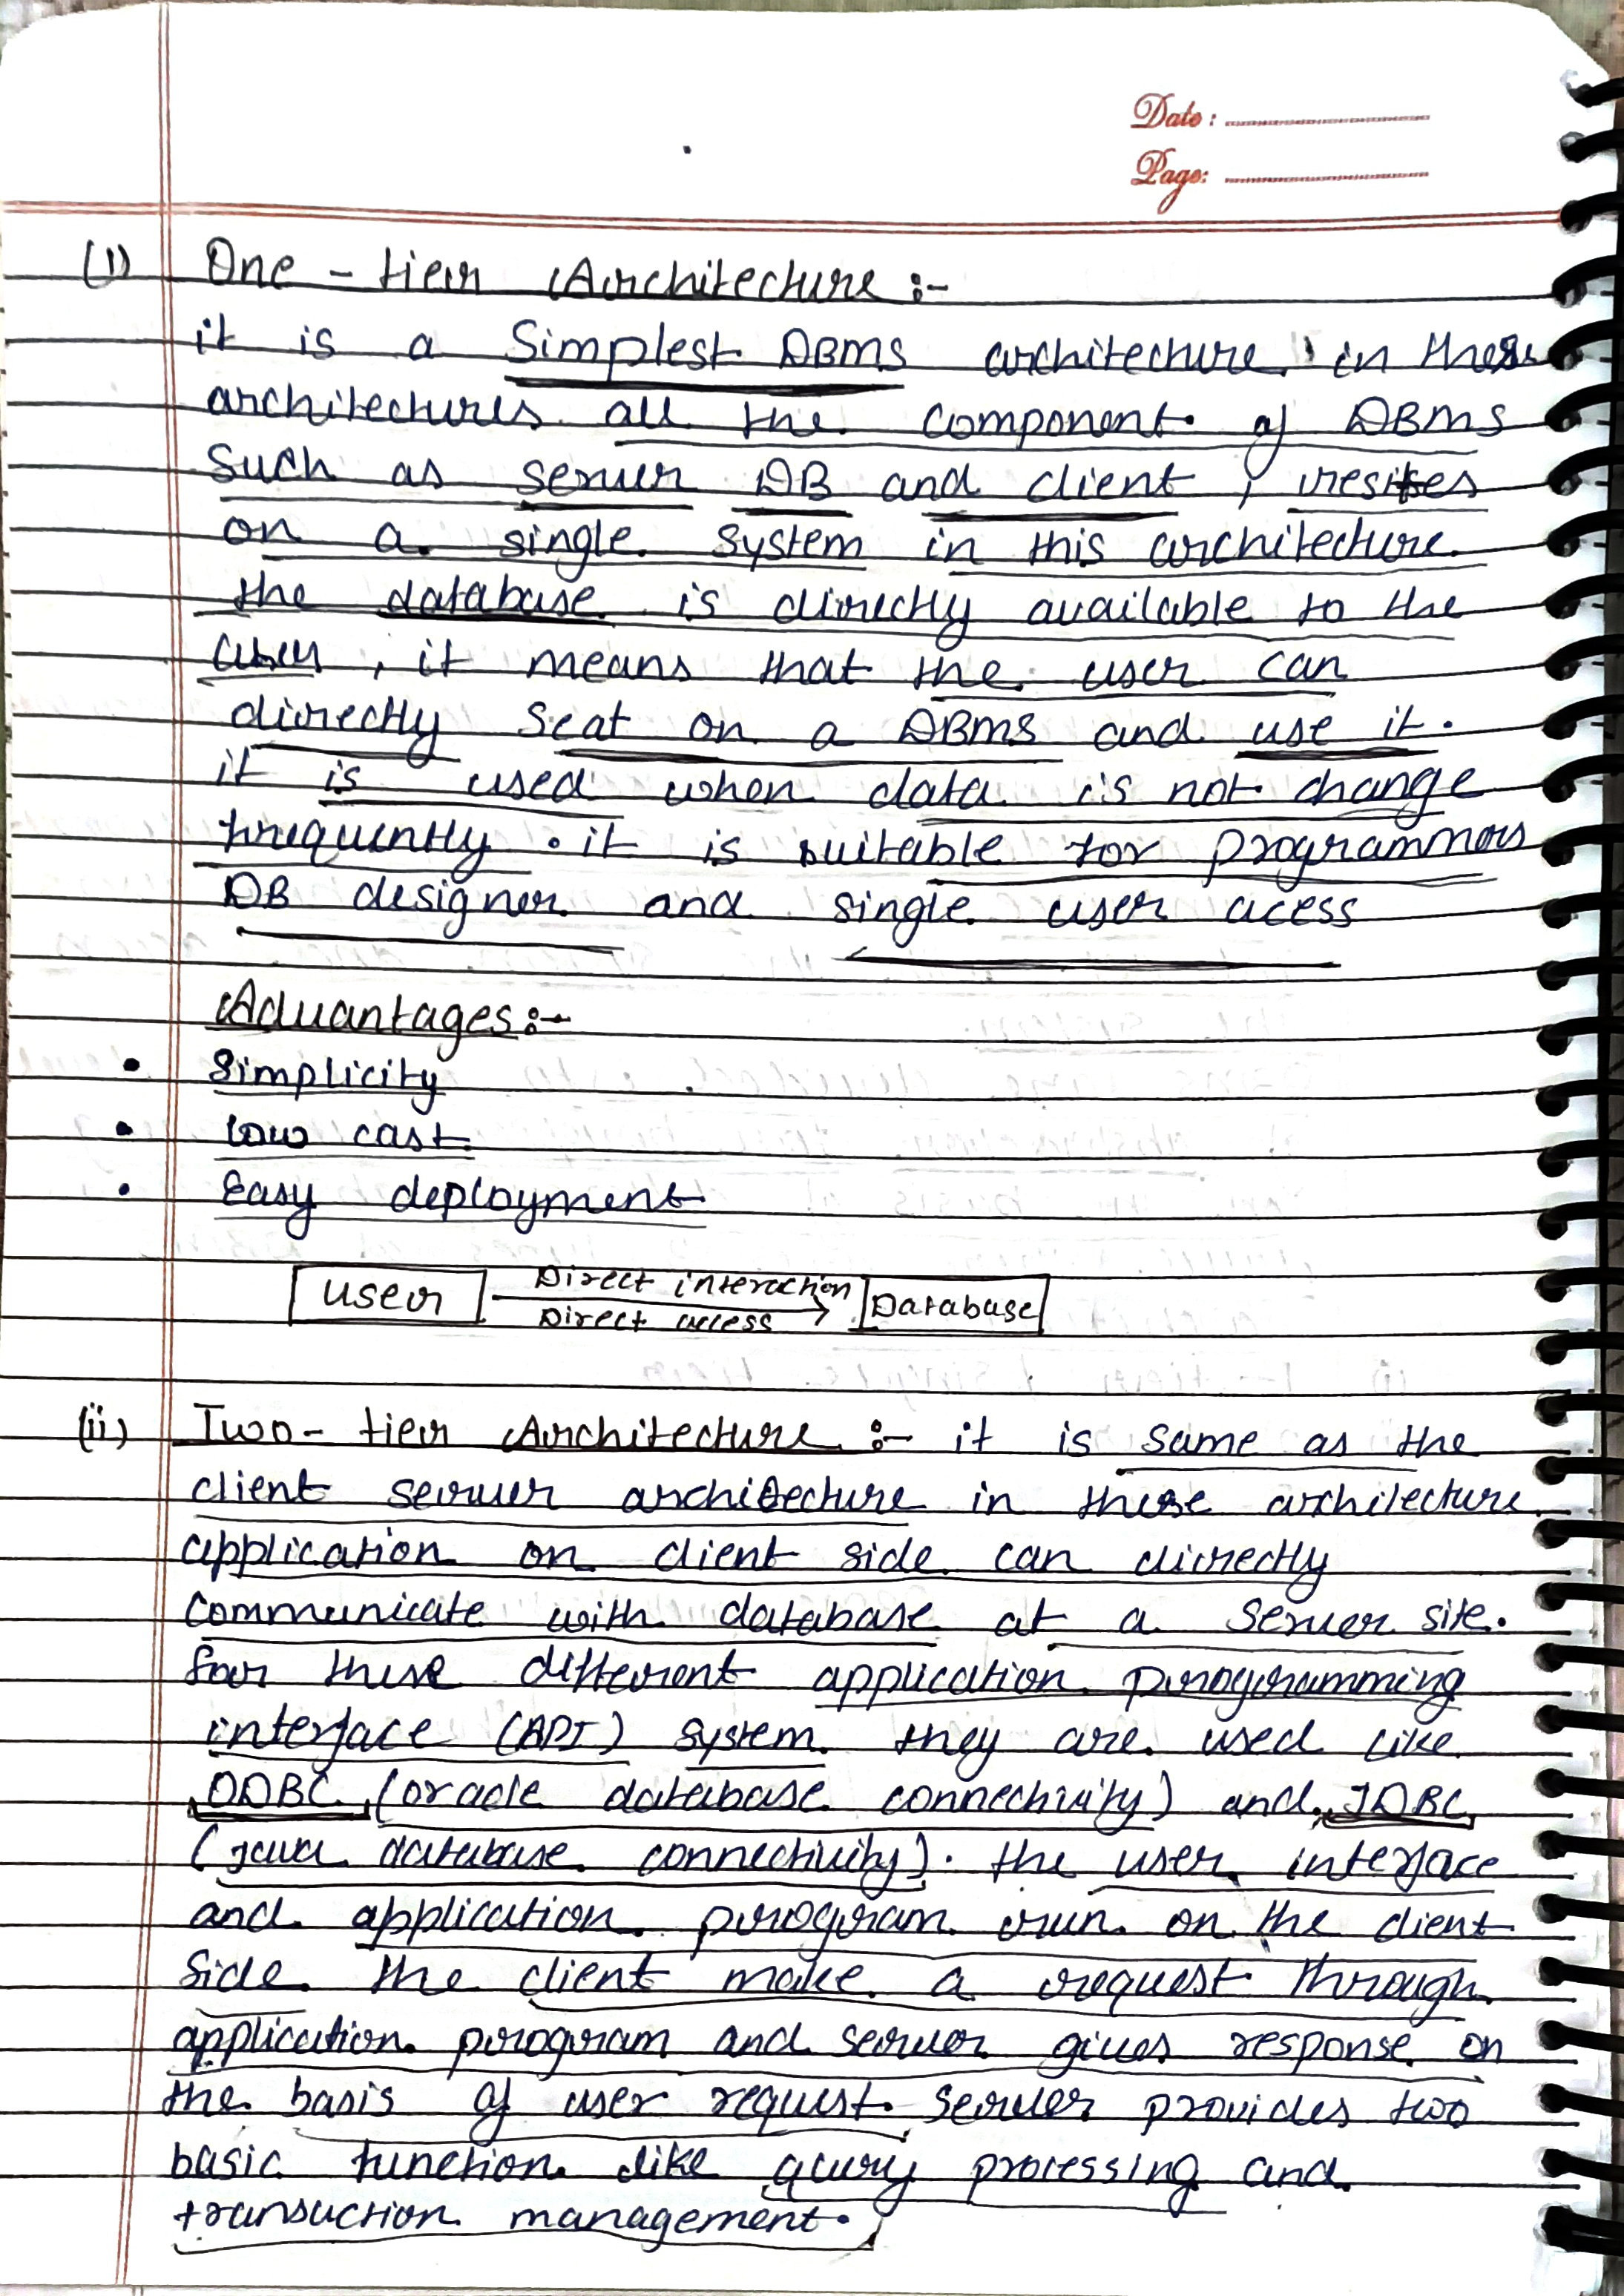 Date :
Page:
(1) One - tier Architecture :-
it is a Simplest DBMS architecture. in these
architectures all the component of DBMS
Such as server DB and client, resites
on a single system in this architecture.
the database is directly available to the
user, it means that the user can
directly seat on a DBMS and use it.
it is used when data is not change
frequently. it is suitable for programmers
DB designer and single user acess
Advantages :-
• Simplicity
• Low cast
• Easy deployment
User Direct interaction Database
Direct access
(ii) Two - tier Architecture :- it is same as the
client server architecture in these architecture
application on client side can directly
communicate with database at a server site.
for these different application programming
interface (API) system they are used like
ODBC (oracle database connectivity) and JDBC
(java database connectivity). the user interface
and application program run on the client
side. the client make a request through
application program and server gives response on
the basis of user request. Server provides two
basic function like query processing and
transaction management.